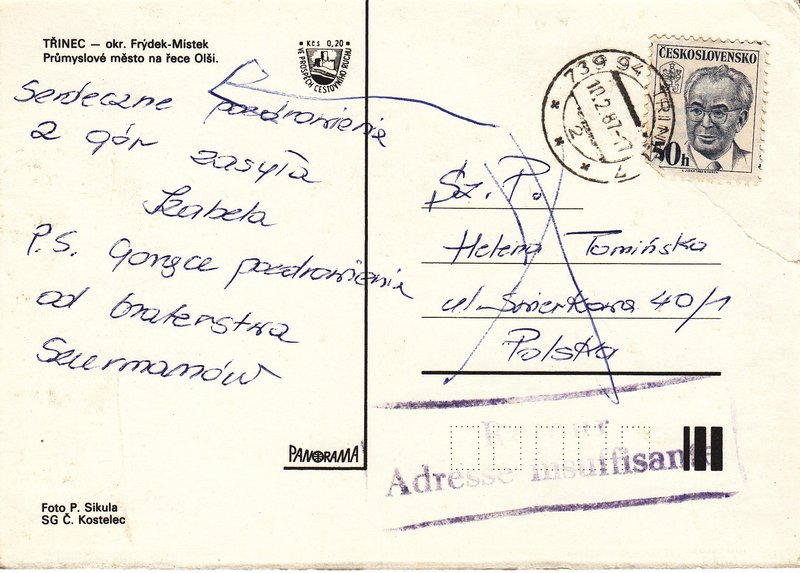 TŘINEC — okr. Frýdek-Místek
Průmyslové město na řece Olši.
Kčs 0,20
VE PROSPĚCH CESTOVNÍHO RUCHU
Serdeczne pozdrowienia
z gór zasyła
Izabela
P.S. Gorące pozdrowienia
od braterstwa
Szurmanów
PANORAMA
Foto P. Sikula
SG Č. Kostelec
ČESKOSLOVENSKO
50h
739 94 TŘINEC
10.2.87-17
Sz. P.
Helena Tomińska
ul. Świerkowa 40/1
Polska
Retour
Adresse insuffisante